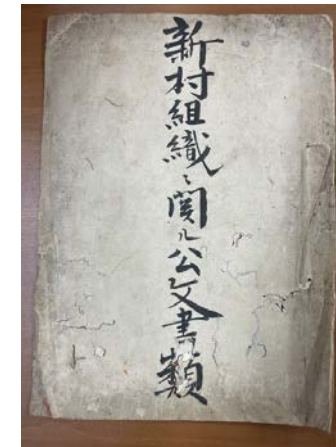 新村組織ニ関ル公文書類